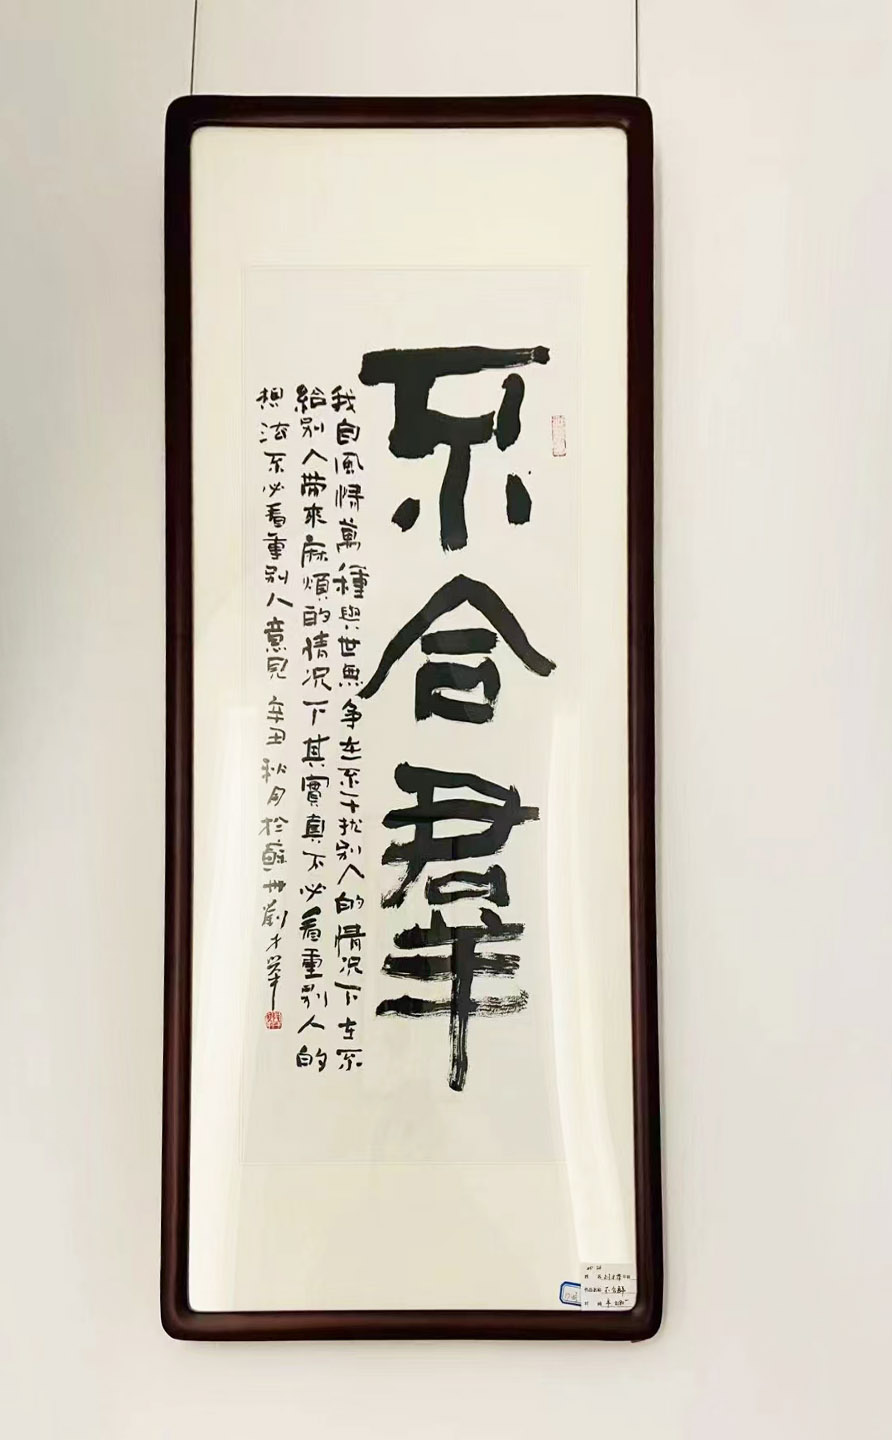 不合羣
我自風情萬種與世無争在不干扰别人的情况下在不
給别人带來麻煩的情况下其實真不必看重别人的
想法不必看重别人意見 辛丑秋月於蘇州劉才華
不合群